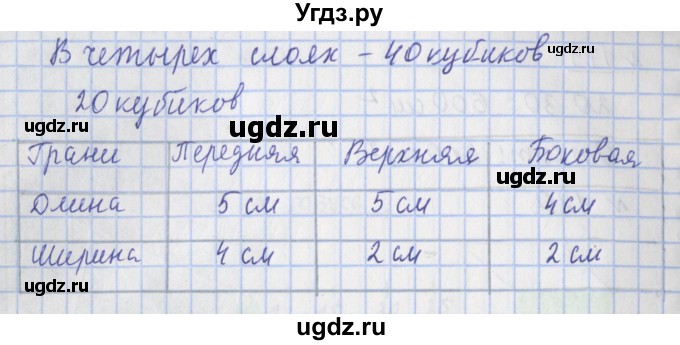 Угдз.ру
В четырех слоях - 40 кубиков
20 кубиков
ugdz.ru
ugdz.ru
ugdz.ru
Грани Передняя Верхняя Боковая
ugdz.ru
Длина 5 см 5 см 4 см
ugdz.ru
Ширина 4 см 2 см 2 см
ugdz.ru
ugdz.ru
ugdz.ru
ugdz.ru